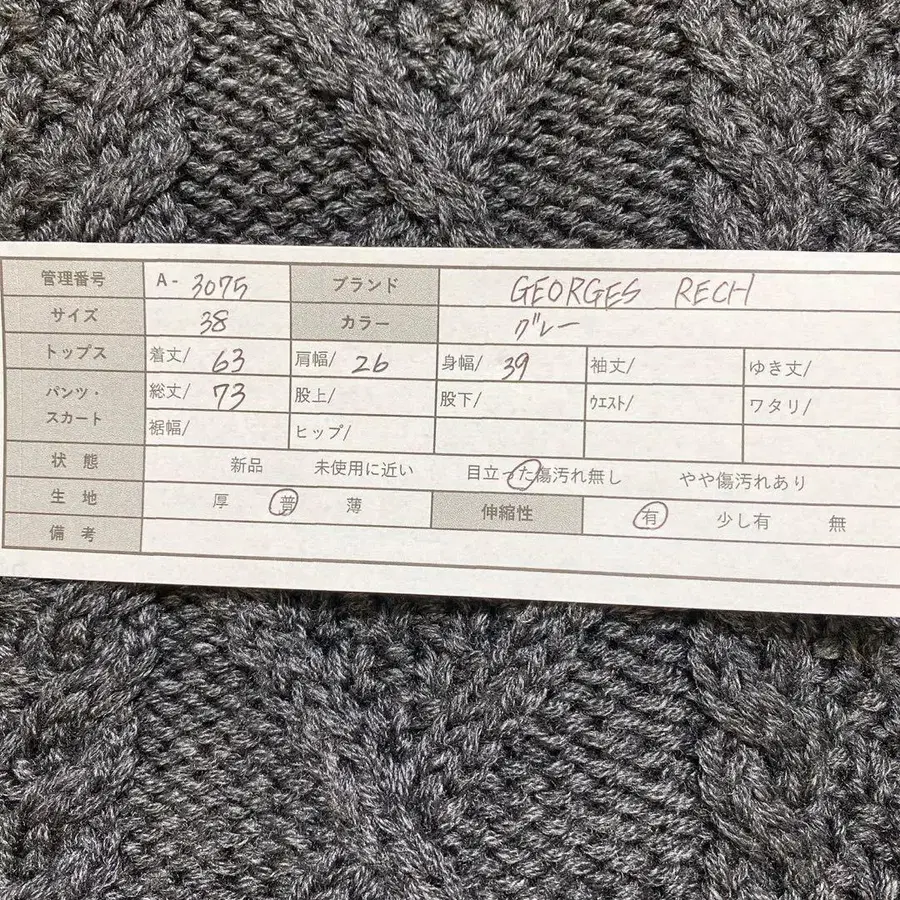 管理番号 A- 3075 ブランド GEORGES RECH
サイズ 38 カラー グレー
トップス 着丈/ 63 肩幅/ 26 身幅/ 39 袖丈/ ゆき丈/
パンツ・スカート 総丈/ 73 股上/ 股下/ ウエスト/ ワタリ/
裾幅/ ヒップ/
状 態 新品 未使用に近い 目立った傷汚れ無し やや傷汚れあり
生 地 厚 普 薄 伸縮性 有 少し有 無
備 考